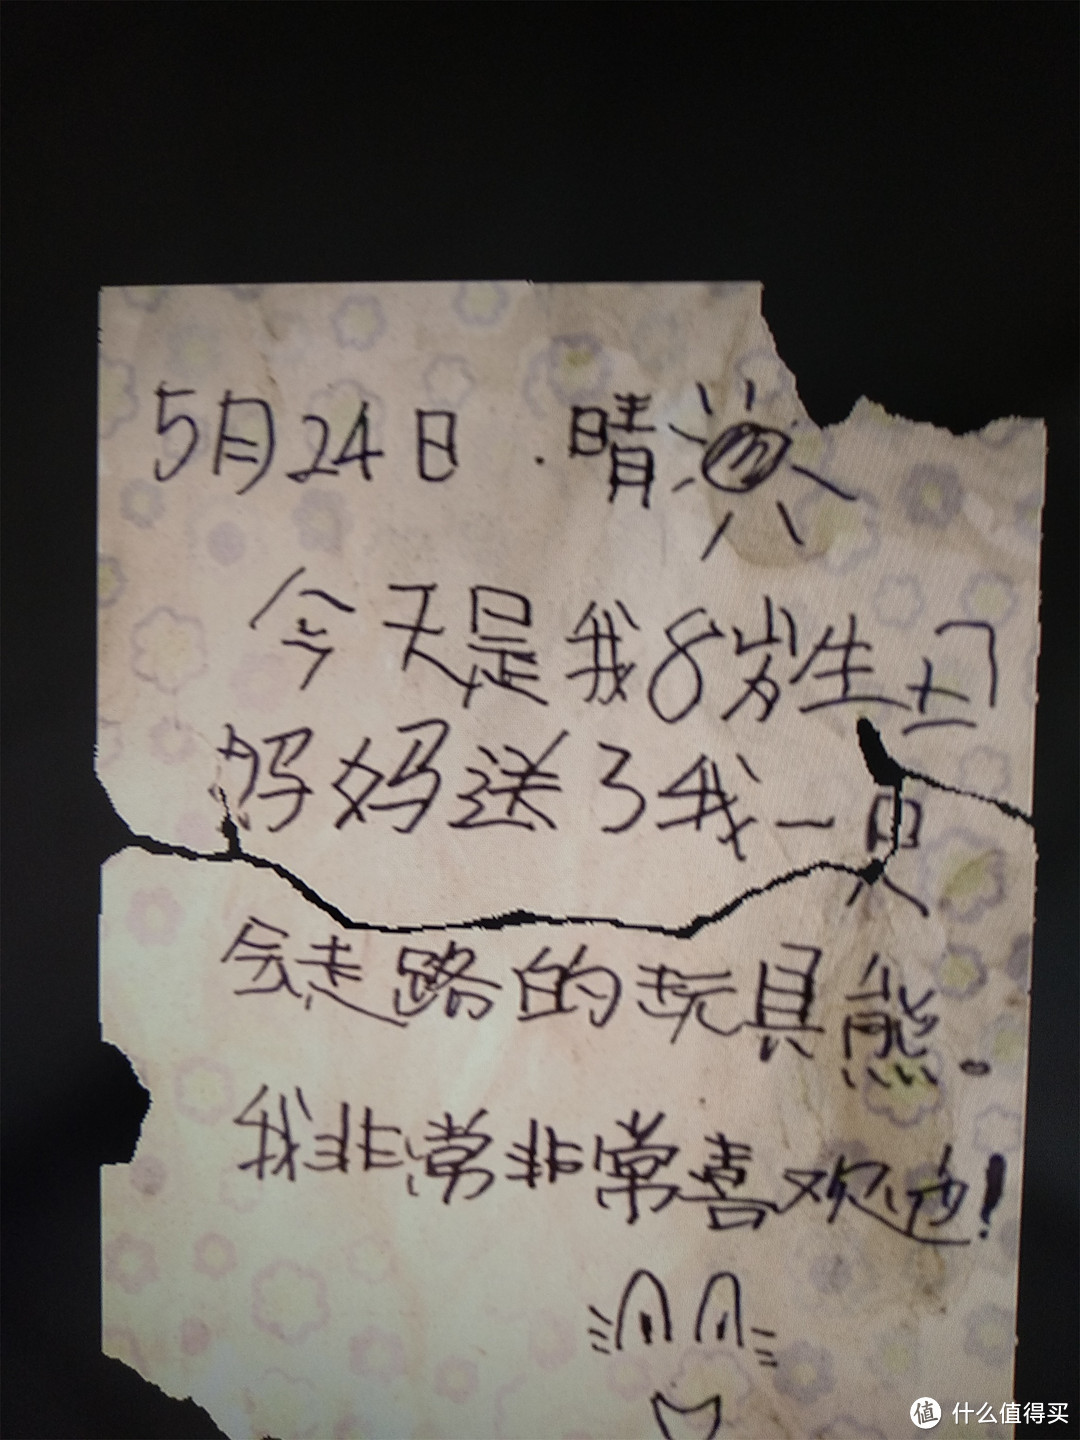 5月24日.晴
今天是我8岁生
妈妈送了我一只
会走路的玩具熊。
我非常非常喜欢!
值 什么值得买